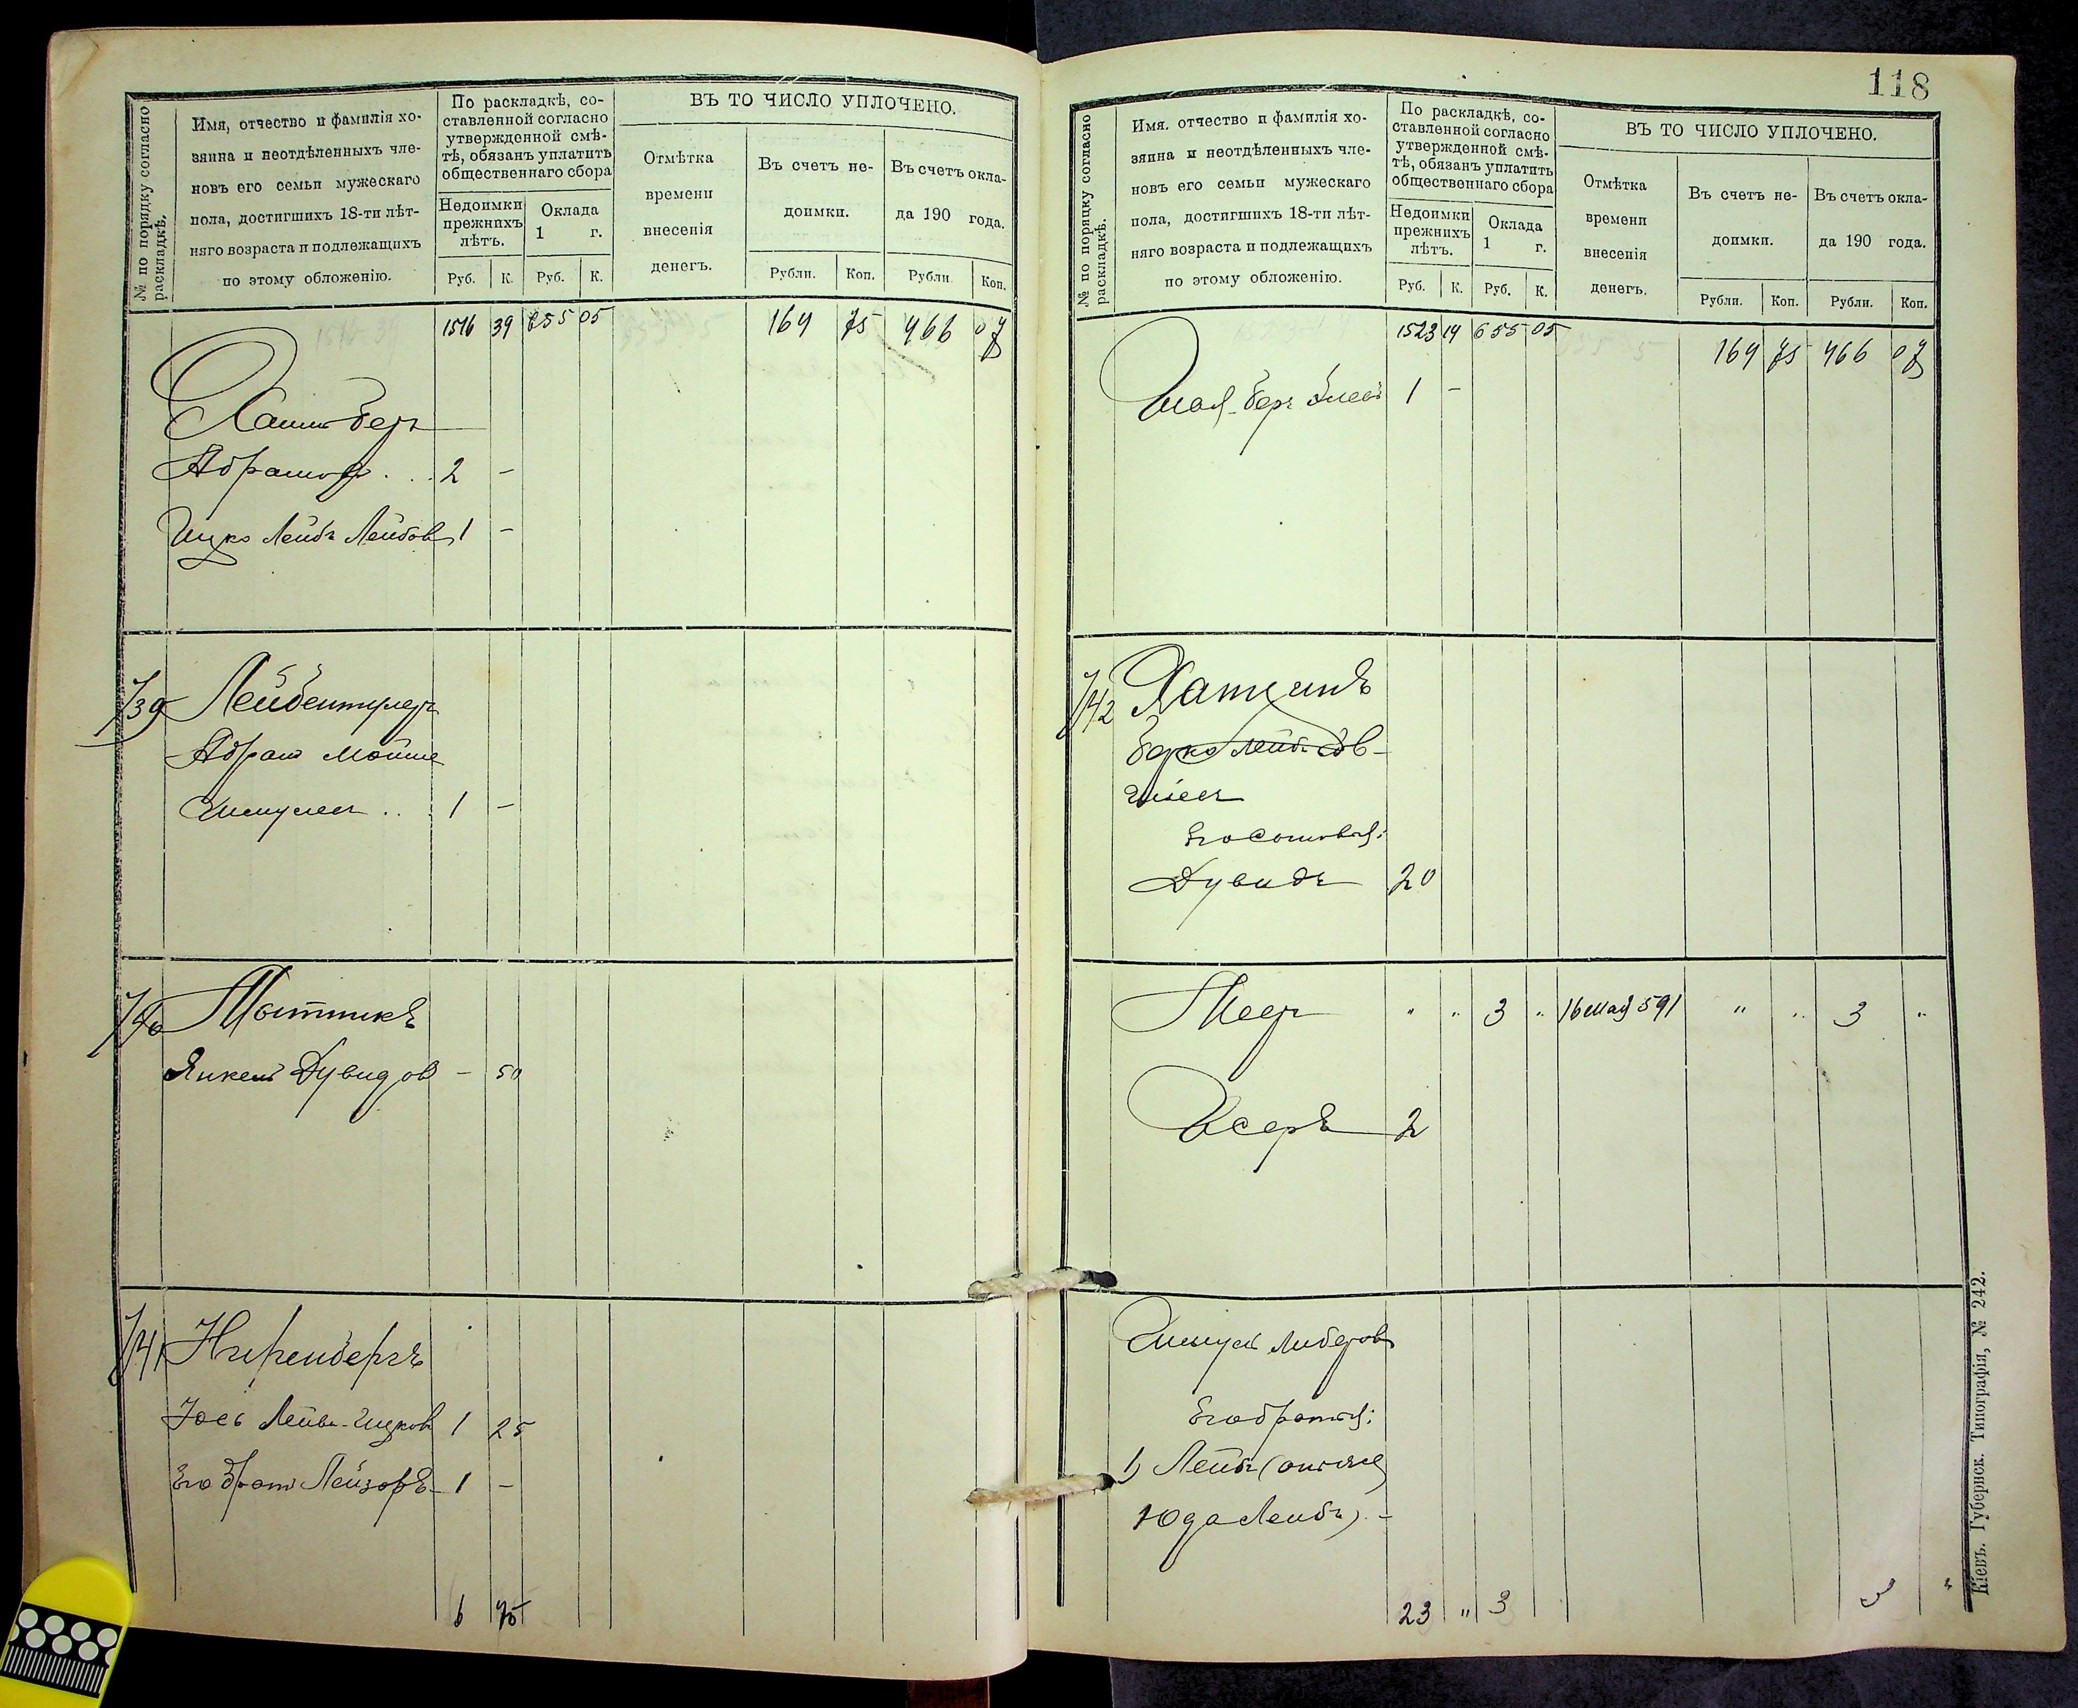 № по порядку согласно раскладкѣ.
Имя, отчество и фамилія хо-
зяина и неотдѣленныхъ чле-
новъ его семьи мужескаго
пола, достигшихъ 18-ти лѣт-
няго возраста и подлежащихъ
по этому обложенію.
По раскладкѣ, со-
ставленной согласно
утвержденной смѣ-
тѣ, обязанъ уплатить
общественнаго сбора
Недоимки
прежнихъ
лѣтъ.
Оклада
1 г.
Руб. К. Руб. К.
ВЪ ТО ЧИСЛО УПЛОЧЕНО.
Отмѣтка
времени
внесенія
денегъ.
Въ счетъ не-
доимки.
Въ счетъ окла-
да 190 года.
Рубли. Коп. Рубли Коп.
1516 39 655 05 164 75 466 07
Абрамов . . . 2 -
Ицко Лейбъ Лейбов 1 -
739 Лейбентулер
Абрам Мойше
Шмулев . . . 1 -
740
Янкель Дувидов - 50
741 Ниренбергъ
Іось Лейб-Ицков 1 25
Его брат Лейзоръ - 1 -
6 75
118
№ по порядку согласно раскладкѣ.
Имя, отчество и фамилія хо-
зяина и неотдѣленныхъ чле-
новъ его семьи мужескаго
пола, достигшихъ 18-ти лѣт-
няго возраста и подлежащихъ
по этому обложенію.
По раскладкѣ, со-
ставленной согласно
утвержденной смѣ-
тѣ, обязанъ уплатить
общественнаго сбора
Недоимки
прежнихъ
лѣтъ.
Оклада
1 г.
Руб. К. Руб. К.
ВЪ ТО ЧИСЛО УПЛОЧЕНО.
Отмѣтка
времени
внесенія
денегъ.
Въ счетъ не-
доимки.
Въ счетъ окла-
да 190 года.
Рубли. Коп. Рубли. Коп.
1523 14 655 05 164 75 466 07
1 -
742 Хатчинъ
Берко Лейбов-
Его сыновья:
Дувидъ 20
Меер " " 3 " 16 мая 591 " " 3 "
Юсеръ 2
Шмуль Либеров
Его братья:
1) Лейбъ (он же
Юда Лейбъ) -
23 " 3 3 "
Кіевъ. Губернск. Типографія, № 242.